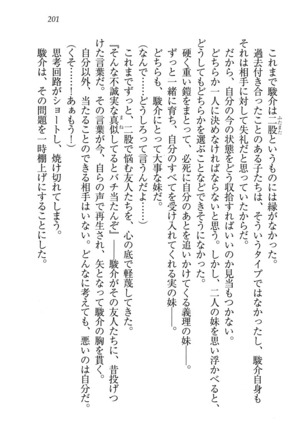 201
これまで駿介は二股というものには縁がなかった。
過去付き合ったことのある子たちは、そういうタイプではなかったし、駿介自身も
それは相手に対して失礼だと思っていたからだ。
だから、自分の今の状態をどう収拾すればいいのか見当もつかない。
どちらか一人に決めなければならないと思う。しかし、二人の妹を思い浮かべると、
どうしてもどちらかを選ぶことなどできそうになかった。
硬く重い鎧をまとって、必死に自分のあとを追いかけてくる義理の妹――。
ずっと一緒に育ち、自分のすべてを受け入れてくれる実の妹――。
どちらも、駿介にとって大事な妹だ。
(なんで……どうしろって言うんだよ……)
これまでずっと、二股で悩む友人たちを、心の底で軽蔑してきた。
『そんな不誠実な真似してるとバチ当たんぞ』――駿介がその友人たちに、昔投げつ
けた言葉だ。その言葉が今、自分の声で再生され、矢となって駿介の胸を貫く。
自分以外、当たることのできる相手はいない。どんなに考えても、悪いのは自分だ。
(くっそー！あぁもう！)
思考回路がショートし、焼け切れてしまう。
駿介は、その問題を一時棚上げにすることにした。